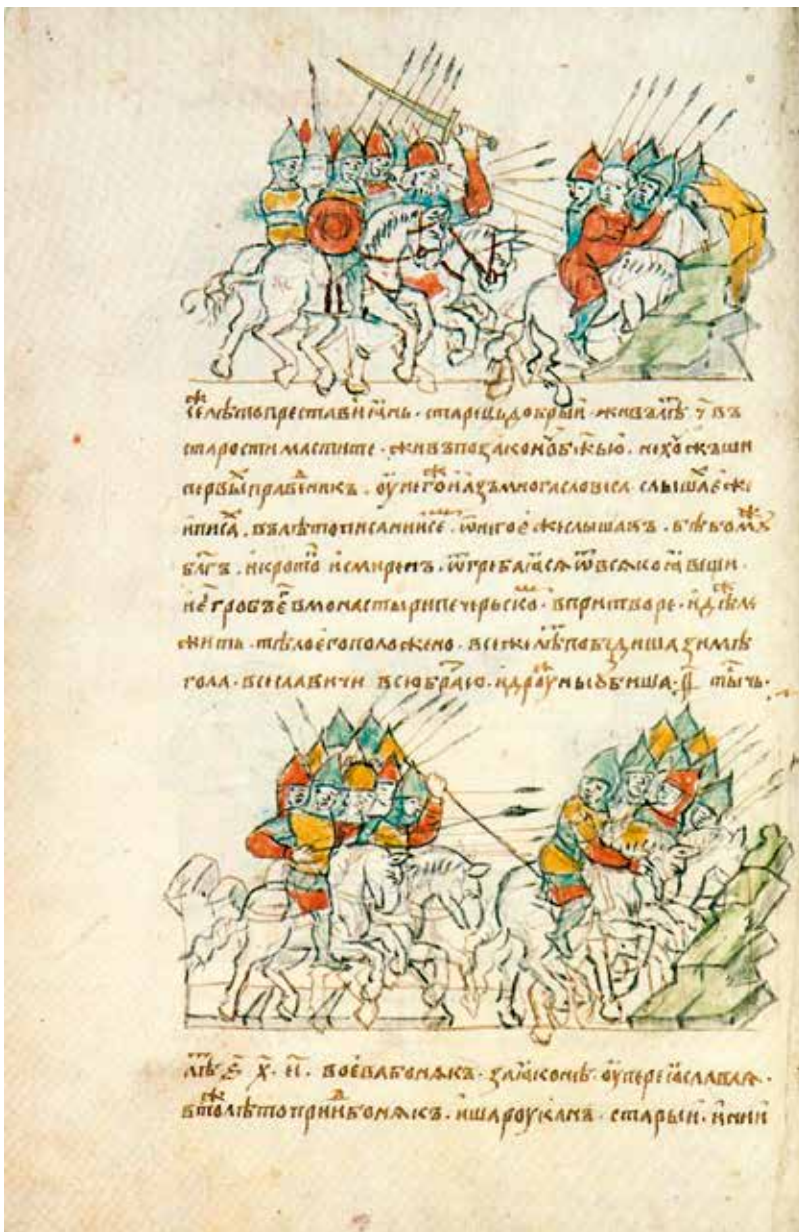 се же лѣто преставися ꙗнь · старець добрый · живъ лѣт · ч҃ въ
старости мастите · живъ по закону бж҃ью · не хужьши
первых праведникъ · оу него же и азъ многа словеса слышах еже
и писах · въ лѣтописании семь · ѿ него же слышахъ · бѣ бо мужь
благъ · и кротокъ и смиренъ · ѿгребаꙗся ѿ всякоꙗ вещи ·
и е҆ гробъ е҆ в монастыри печерьском · в притворе · идѣже ле
жить · тѣло е҆го положено · в се же лѣто побѣдиша зимѣ
гола · всеславичи всю братью · и дружины оубиша · ҂ѳ҃ тысячь ·
лѣт ҂ѕ҃ · х҃ · є҃і҃ · воева бонякъ · заꙗ коне · оу переꙗславля ·
в то же лѣто приид бонякъ · и шароуканъ · старый · и инии